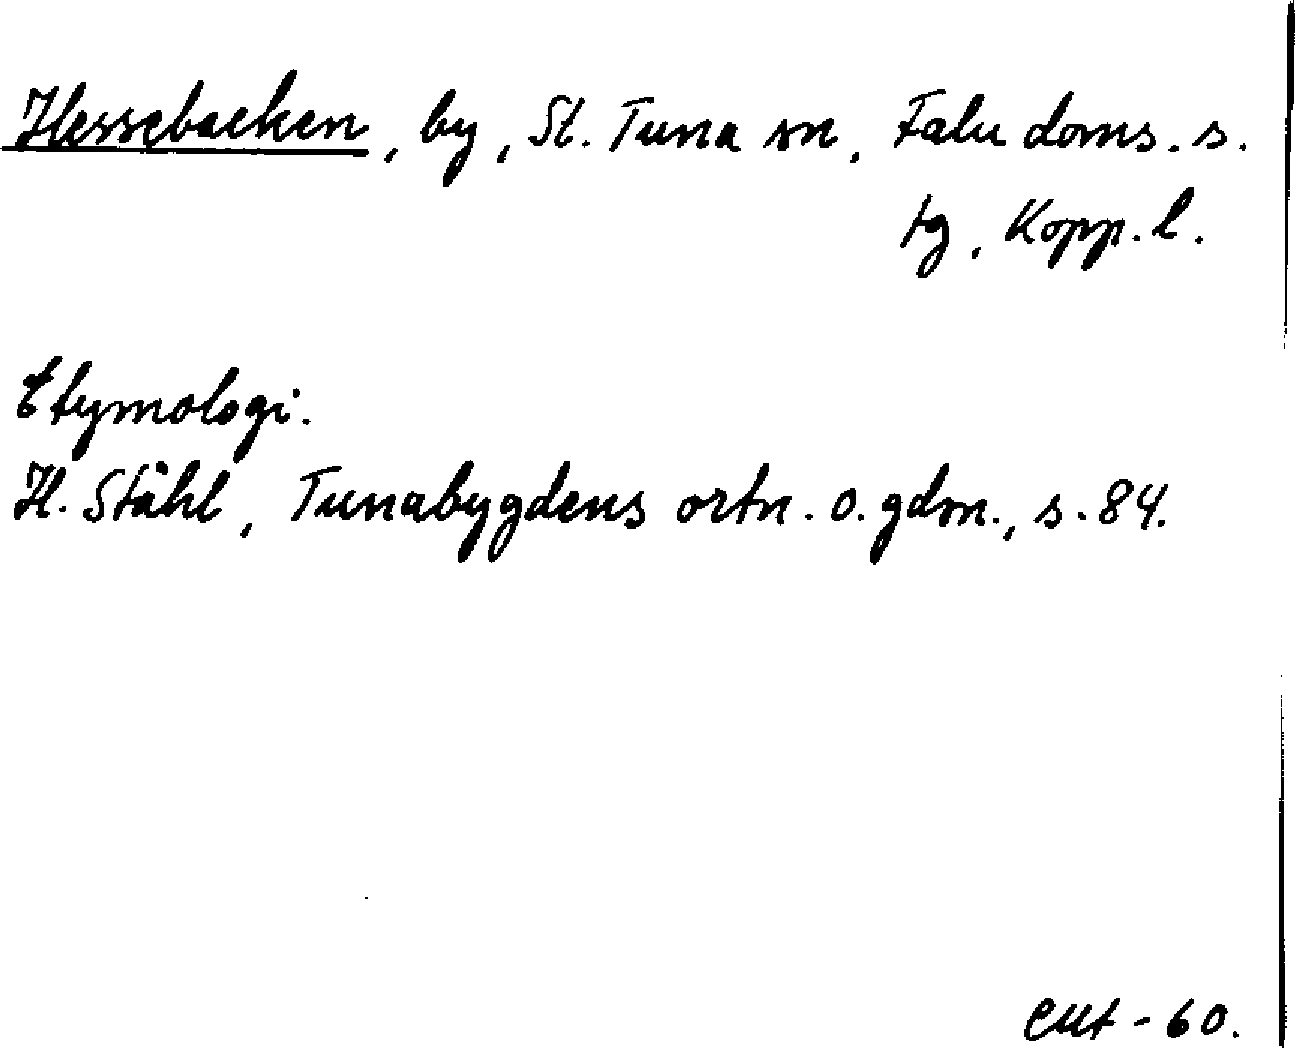 Hessebacken, by, St. Tuna sn, Falu doms. s.
tg, Kopp. l.
Etymologi.
H. Ståhl, Tunabygdens ortn. o. gdn., s. 84.
-60.